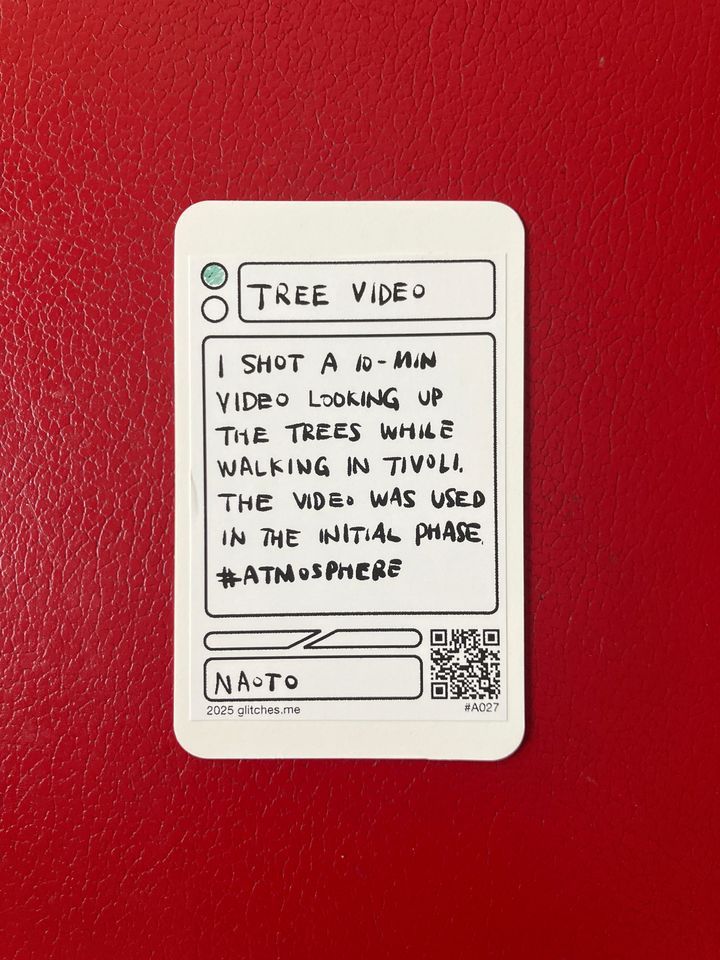 TREE VIDEO
I SHOT A 10-MIN
VIDEO LOOKING UP
THE TREES WHILE
WALKING IN TIVOLI.
THE VIDEO WAS USED
IN THE INITIAL PHASE.
#ATMOSPHERE
NAOTO
2025 glitches.me
#A027